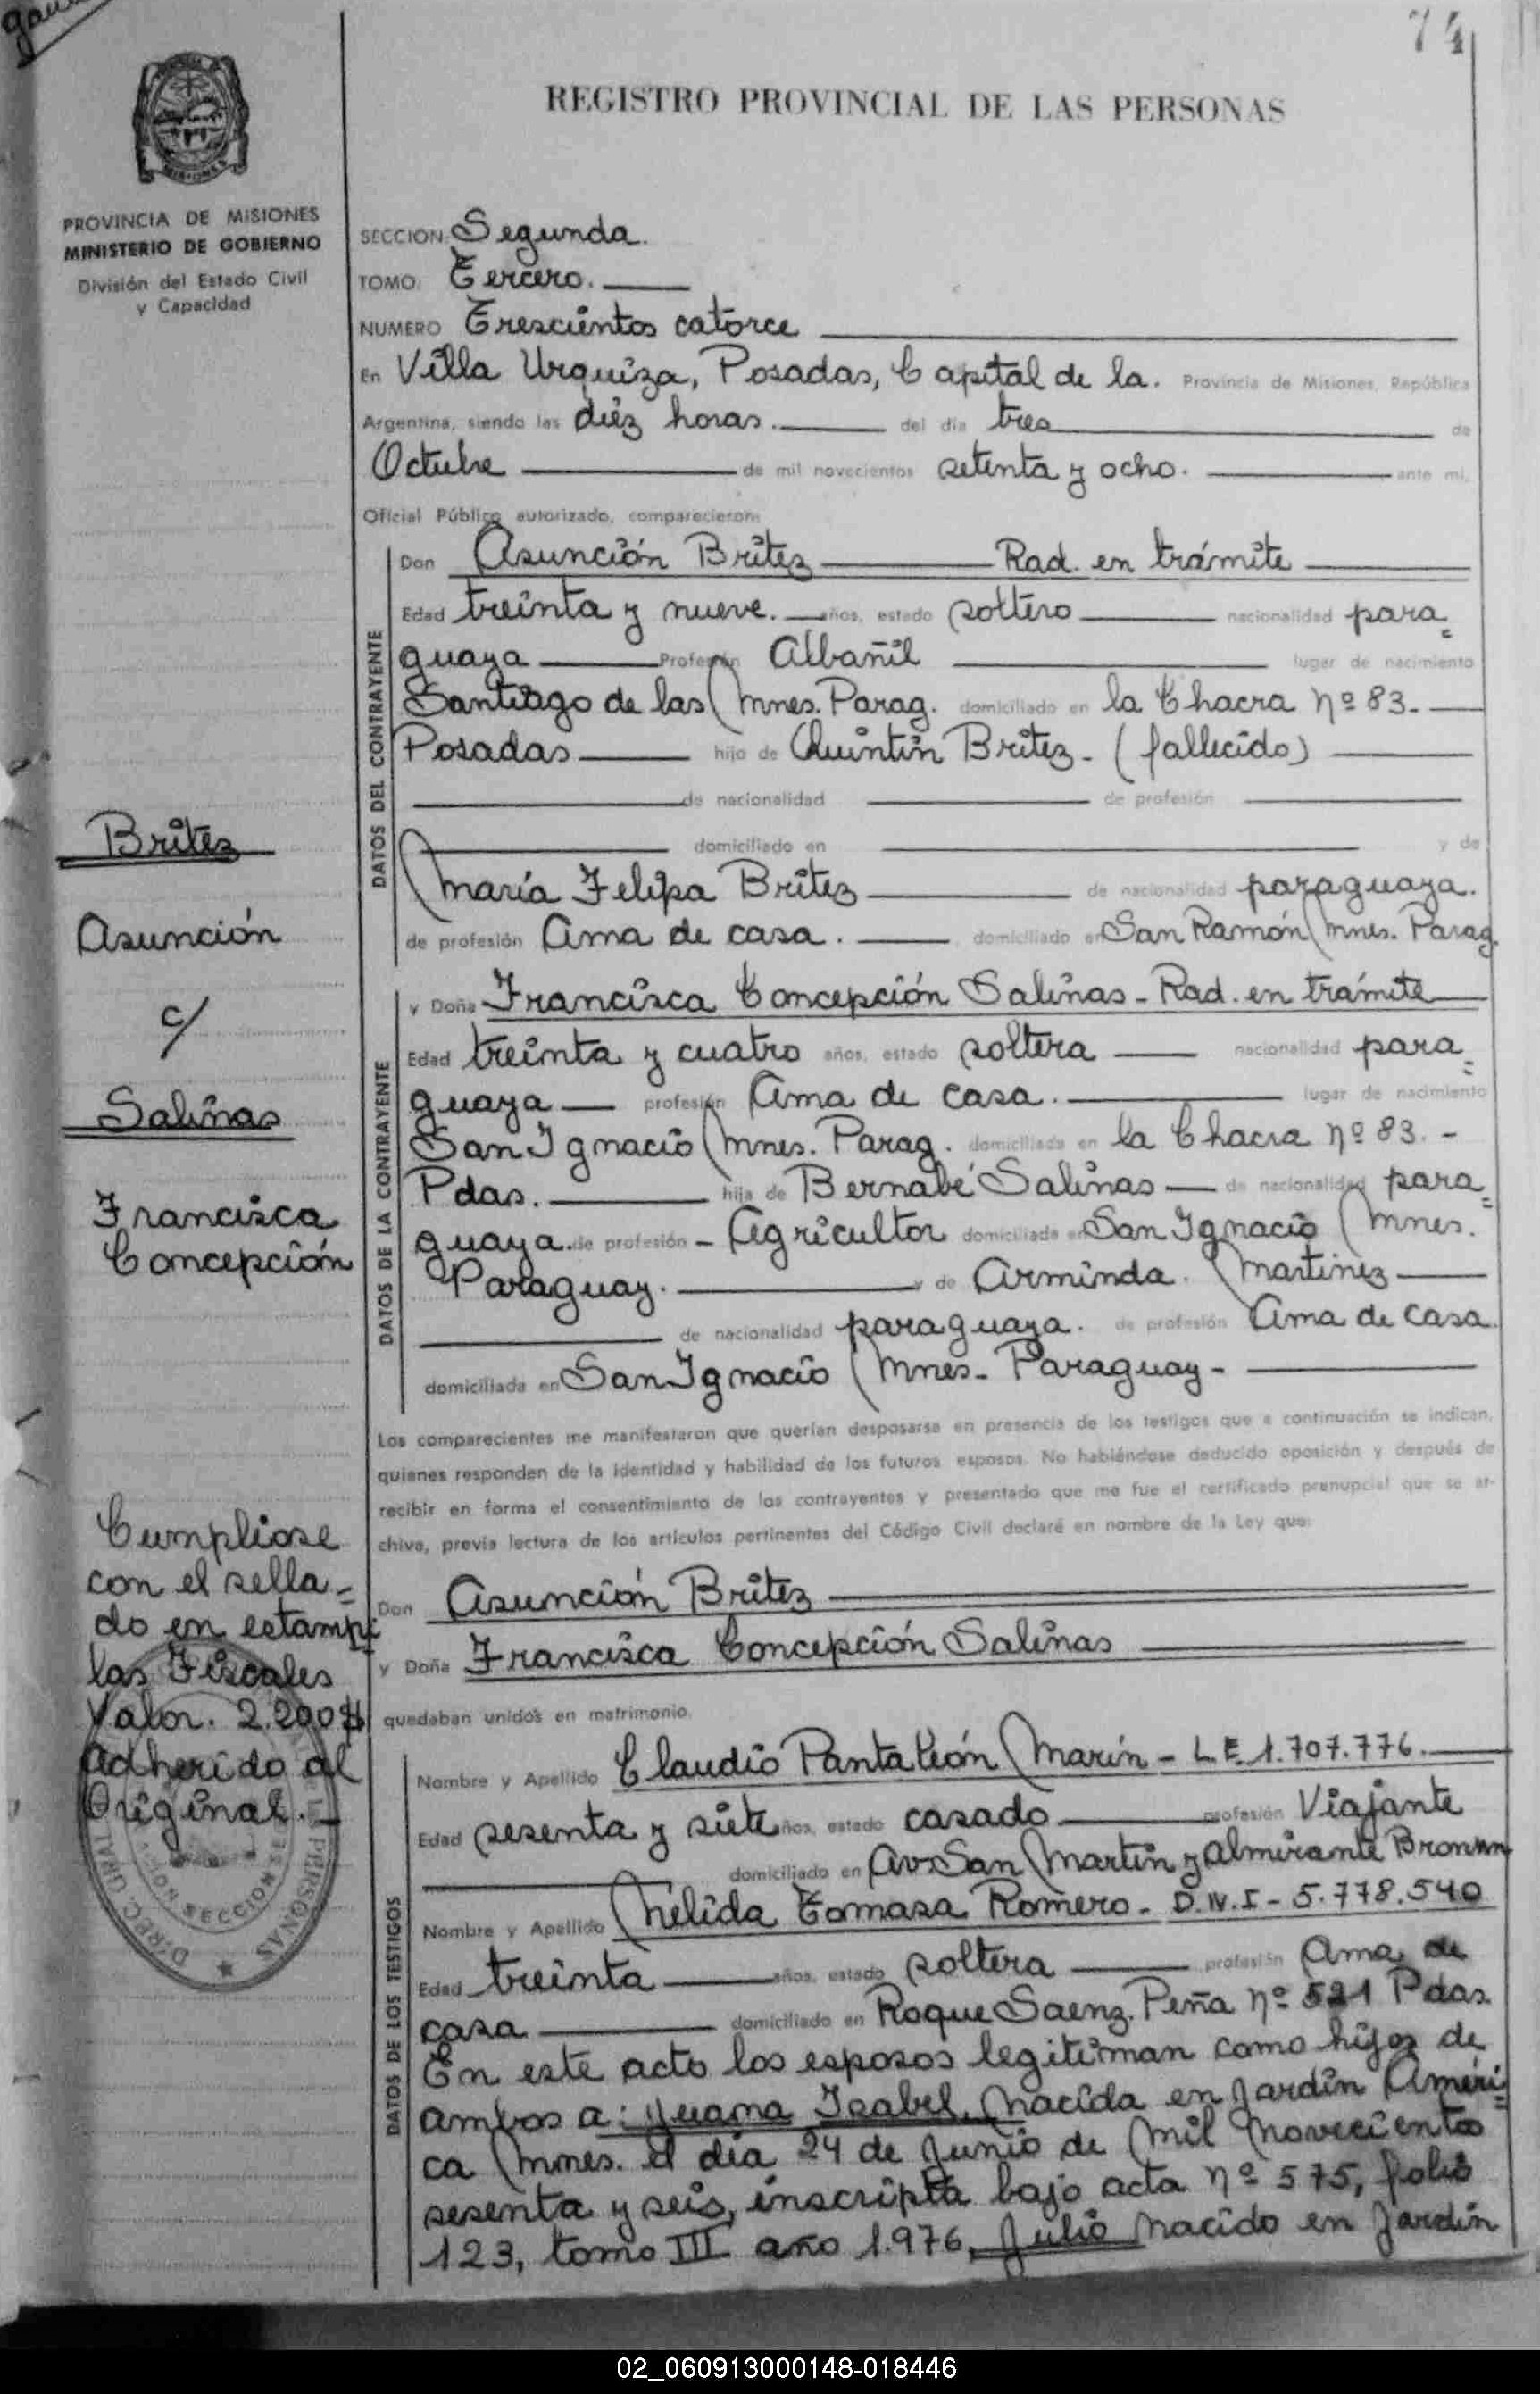 74
REGISTRO PROVINCIAL DE LAS PERSONAS
MISIONES
PROVINCIA DE MISIONES
MINISTERIO DE GOBIERNO
División del Estado Civil
y Capacidad
SECCION: Segunda.
TOMO: Tercero.
NUMERO Trescientos catorce
En Villa Urquiza, Posadas, Capital de la. Provincia de Misiones, República
Argentina, siendo las diéz horas. del día tres de
Octubre de mil novecientos setenta y ocho. ante mi,
Oficial Público autorizado, comparecieron:
DATOS DEL CONTRAYENTE
Don Asunción Britez Rad. en trámite
Edad treinta y nueve. años, estado soltero nacionalidad para=
guaya Profesión Albañil lugar de nacimiento
Santiago de las Mnes. Parag. domiciliado en la Chacra Nº 83.-
Posadas hijo de Quintín Britez - (fallecido)
de nacionalidad de profesión
domiciliado en y de
María Felipa Britez de nacionalidad paraguaya.
de profesión Ama de casa. domiciliado en San Ramón Mnes. Parag.
DATOS DE LA CONTRAYENTE
y Doña Francisca Concepción Salinas - Rad. en trámite
Edad treinta y cuatro años, estado soltera nacionalidad para=
guaya profesión Ama de casa. lugar de nacimiento
San Ignacio Mnes. Parag. domiciliada en la Chacra Nº 83. -
Pdas. hija de Bernabé Salinas de nacionalidad para=
guaya. de profesión - Agricultor domiciliado en San Ignacio Mnes.
Paraguay. y de Arminda. Martinez
de nacionalidad paraguaya. de profesión Ama de casa.
domiciliada en San Ignacio Mnes - Paraguay -
Los comparecientes me manifestaron que querían desposarse en presencia de los testigos que a continuación se indican,
quienes responden de la identidad y habilidad de los futuros esposos. No habiéndose deducido oposición y después de
recibir en forma el consentimiento de los contrayentes y presentado que me fue el certificado prenupcial que se ar-
chiva, previa lectura de los artículos pertinentes del Código Civil declaré en nombre de la Ley que:
Don Asunción Britez
y Doña Francisca Concepción Salinas
quedaban unidos en matrimonio.
DATOS DE LOS TESTIGOS
Nombre y Apellido Claudio Pantaleón Marín - L.E. 1.707.776.
Edad sesenta y siete años, estado casado profesión Viajante
domiciliado en Av. San Martín y Almirante Brown
Nombre y Apellido Nélida Tomasa Romero - D.N.I - 5.778.540
Edad treinta años, estado soltera profesión Ama de
casa domiciliado en Roque Saenz. Peña Nº 521 Pdas.
En este acto los esposos legitiman como hijos de
ambos a: Juana Isabel, Nacida en Jardín Améri=
ca Mnes. el día 24 de Junio de Mil Novecientos
sesenta y seis, inscripta bajo acta Nº 575, folio
123, tomo III año 1.976, Julio Nacido en Jardín
Britez
Asunción
c/
Salinas
Francisca
Concepción
Cumpliose
con el sella=
do en estampi
las Fiscales
Valor. 2.200$
adherido al
Original.-
02_060913000148-018446